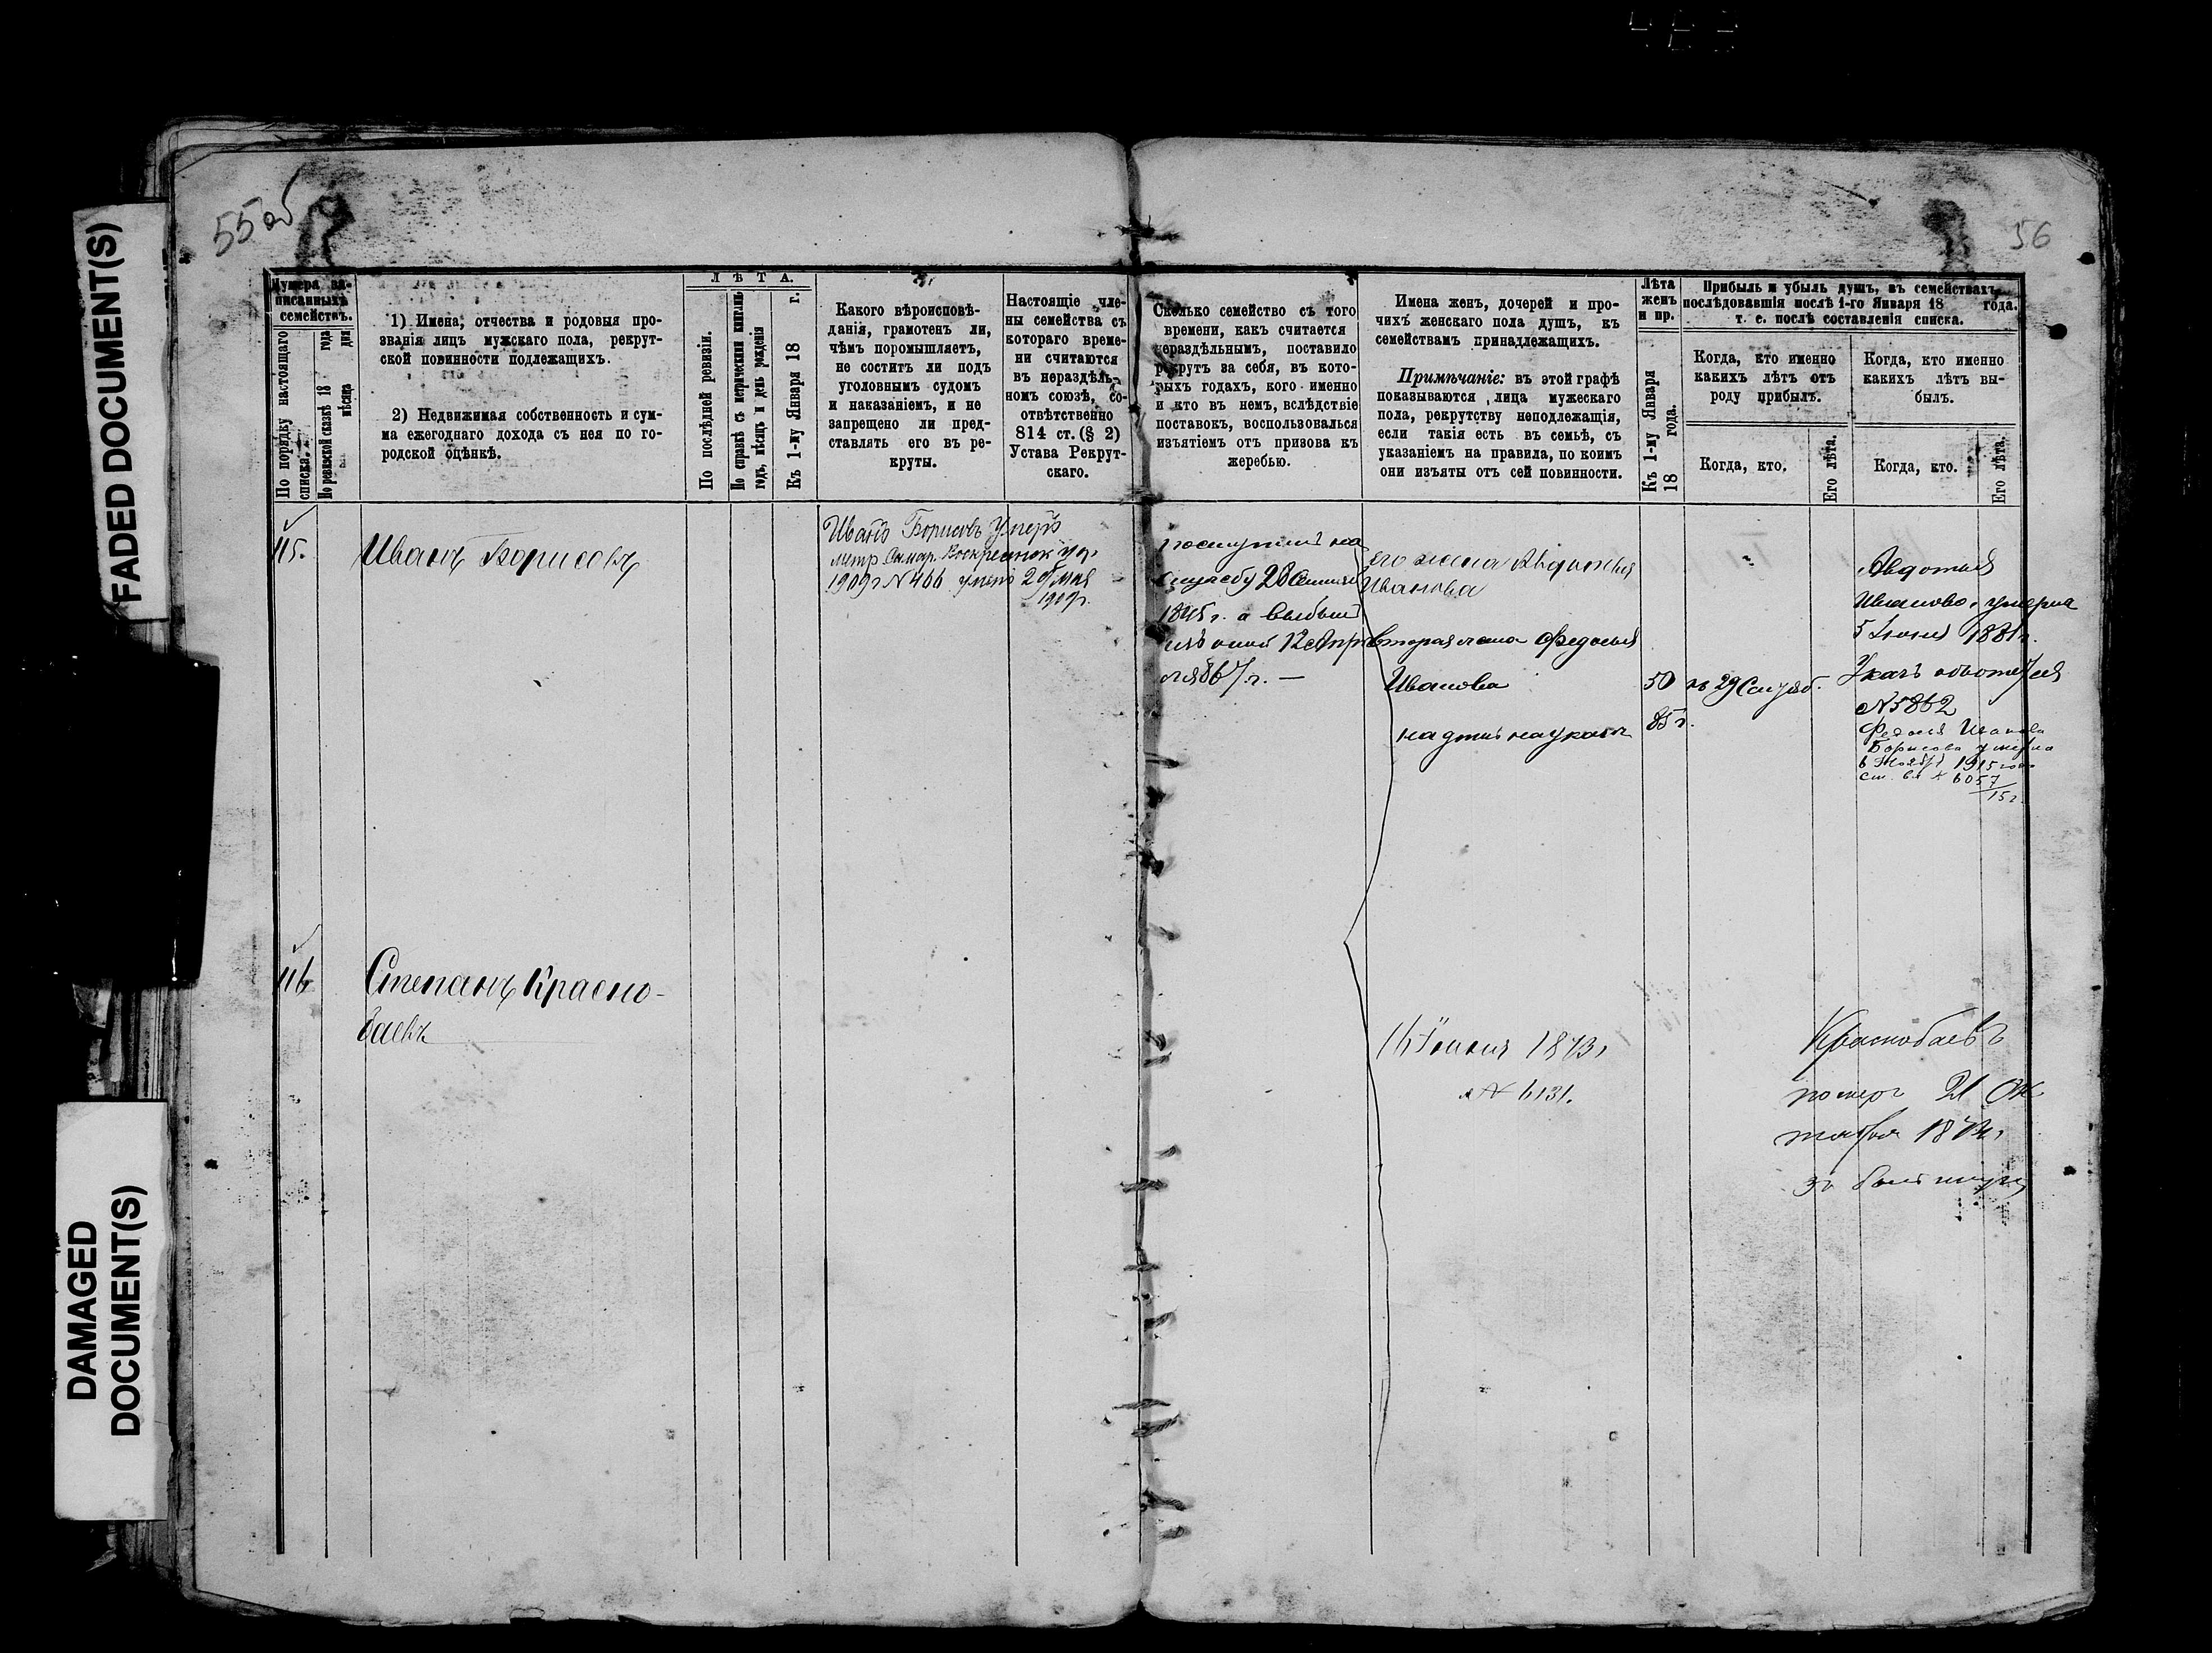 FADED DOCUMENT(S)
DAMAGED
DOCUMENT(S)
55 об
56
Нумера за-
писанныхъ
семействъ.
По порядку настоящаго
списка.
По ревизской сказкѣ 18 года
мѣсяца дня
1) Имена, отчества и родовыя про-
званія лицъ мужскаго пола, рекрут-
ской повинности подлежащихъ.
2) Недвижимая собственность и сум-
ма ежегоднаго дохода съ нея по го-
родской оцѣнкѣ.
ЛѢТА.
По послѣдней ревизіи.
По справкѣ съ метрическими книгами
годъ, мѣсяцъ и день рожденія
Къ 1-му Января 18 г.
Какого вѣроисповѣ-
данія, грамотенъ ли,
чѣмъ поромышляетъ,
не соститъ ли подъ
уголовнымъ судомъ
и наказаніемъ, и не
запрещено ли пред-
ставлять его въ ре-
круты.
Настоящіе чле-
ны семейства съ
котораго време-
ни считаются
въ нераздѣль-
номъ союзѣ, со-
отвѣтственно
814 ст. (§ 2)
Устава Рекрут-
скаго.
Сколько семейство съ того
времени, какъ считается
нераздѣльнымъ, поставило
рекрутъ за себя, въ кото-
рыхъ годахъ, кого именно
и кто въ немъ, вслѣдствіе
поставокъ, воспользовался
изъятіемъ отъ призова къ
жеребью.
Имена женъ, дочерей и про-
чихъ женскаго пола душъ, къ
семействамъ принадлежащихъ.
Примѣчаніе: въ этой графѣ
показываются лица мужескаго
пола, рекрутству неподлежащія,
если такія есть въ семьѣ, съ
указаніемъ на правила, по коимъ
они изъяты отъ сей повинности.
Лѣта
женъ
и пр.
Къ 1-му Января
18 года.
Прибыль и убыль душъ, въ семействахъ
послѣдовавшія послѣ 1-го Января 18 года.
т. е. послѣ составленія списка.
Когда, кто именно
какихъ лѣтъ отъ
роду прибылъ.
Когда, кто.
Его лѣта.
Когда, кто именно
какихъ лѣтъ вы-
былъ.
Когда, кто.
Его лѣта.
115.
Иванъ Борисовъ
Иванъ Борисовъ умеръ
метр. Самар.
1909г №466 умеръ 29 Мая
1909г.
поступилъ на
службу 28
1845г. а выбылъ
12 Апр
г. —
его жена Авдотья
Иванова
вторая жена Федосья
Иванова
50
85г.
29
Авдотья
Иванова умерла
5 Іюня 1881г.
Указъ
№5862
Иванова
Борисова умерла
1915
6057
15г.
116
Степанъ Красно-
баевъ
16 Іюня 1873г
№ 6131.
Краснобаевъ
померъ 21 Ок
тября